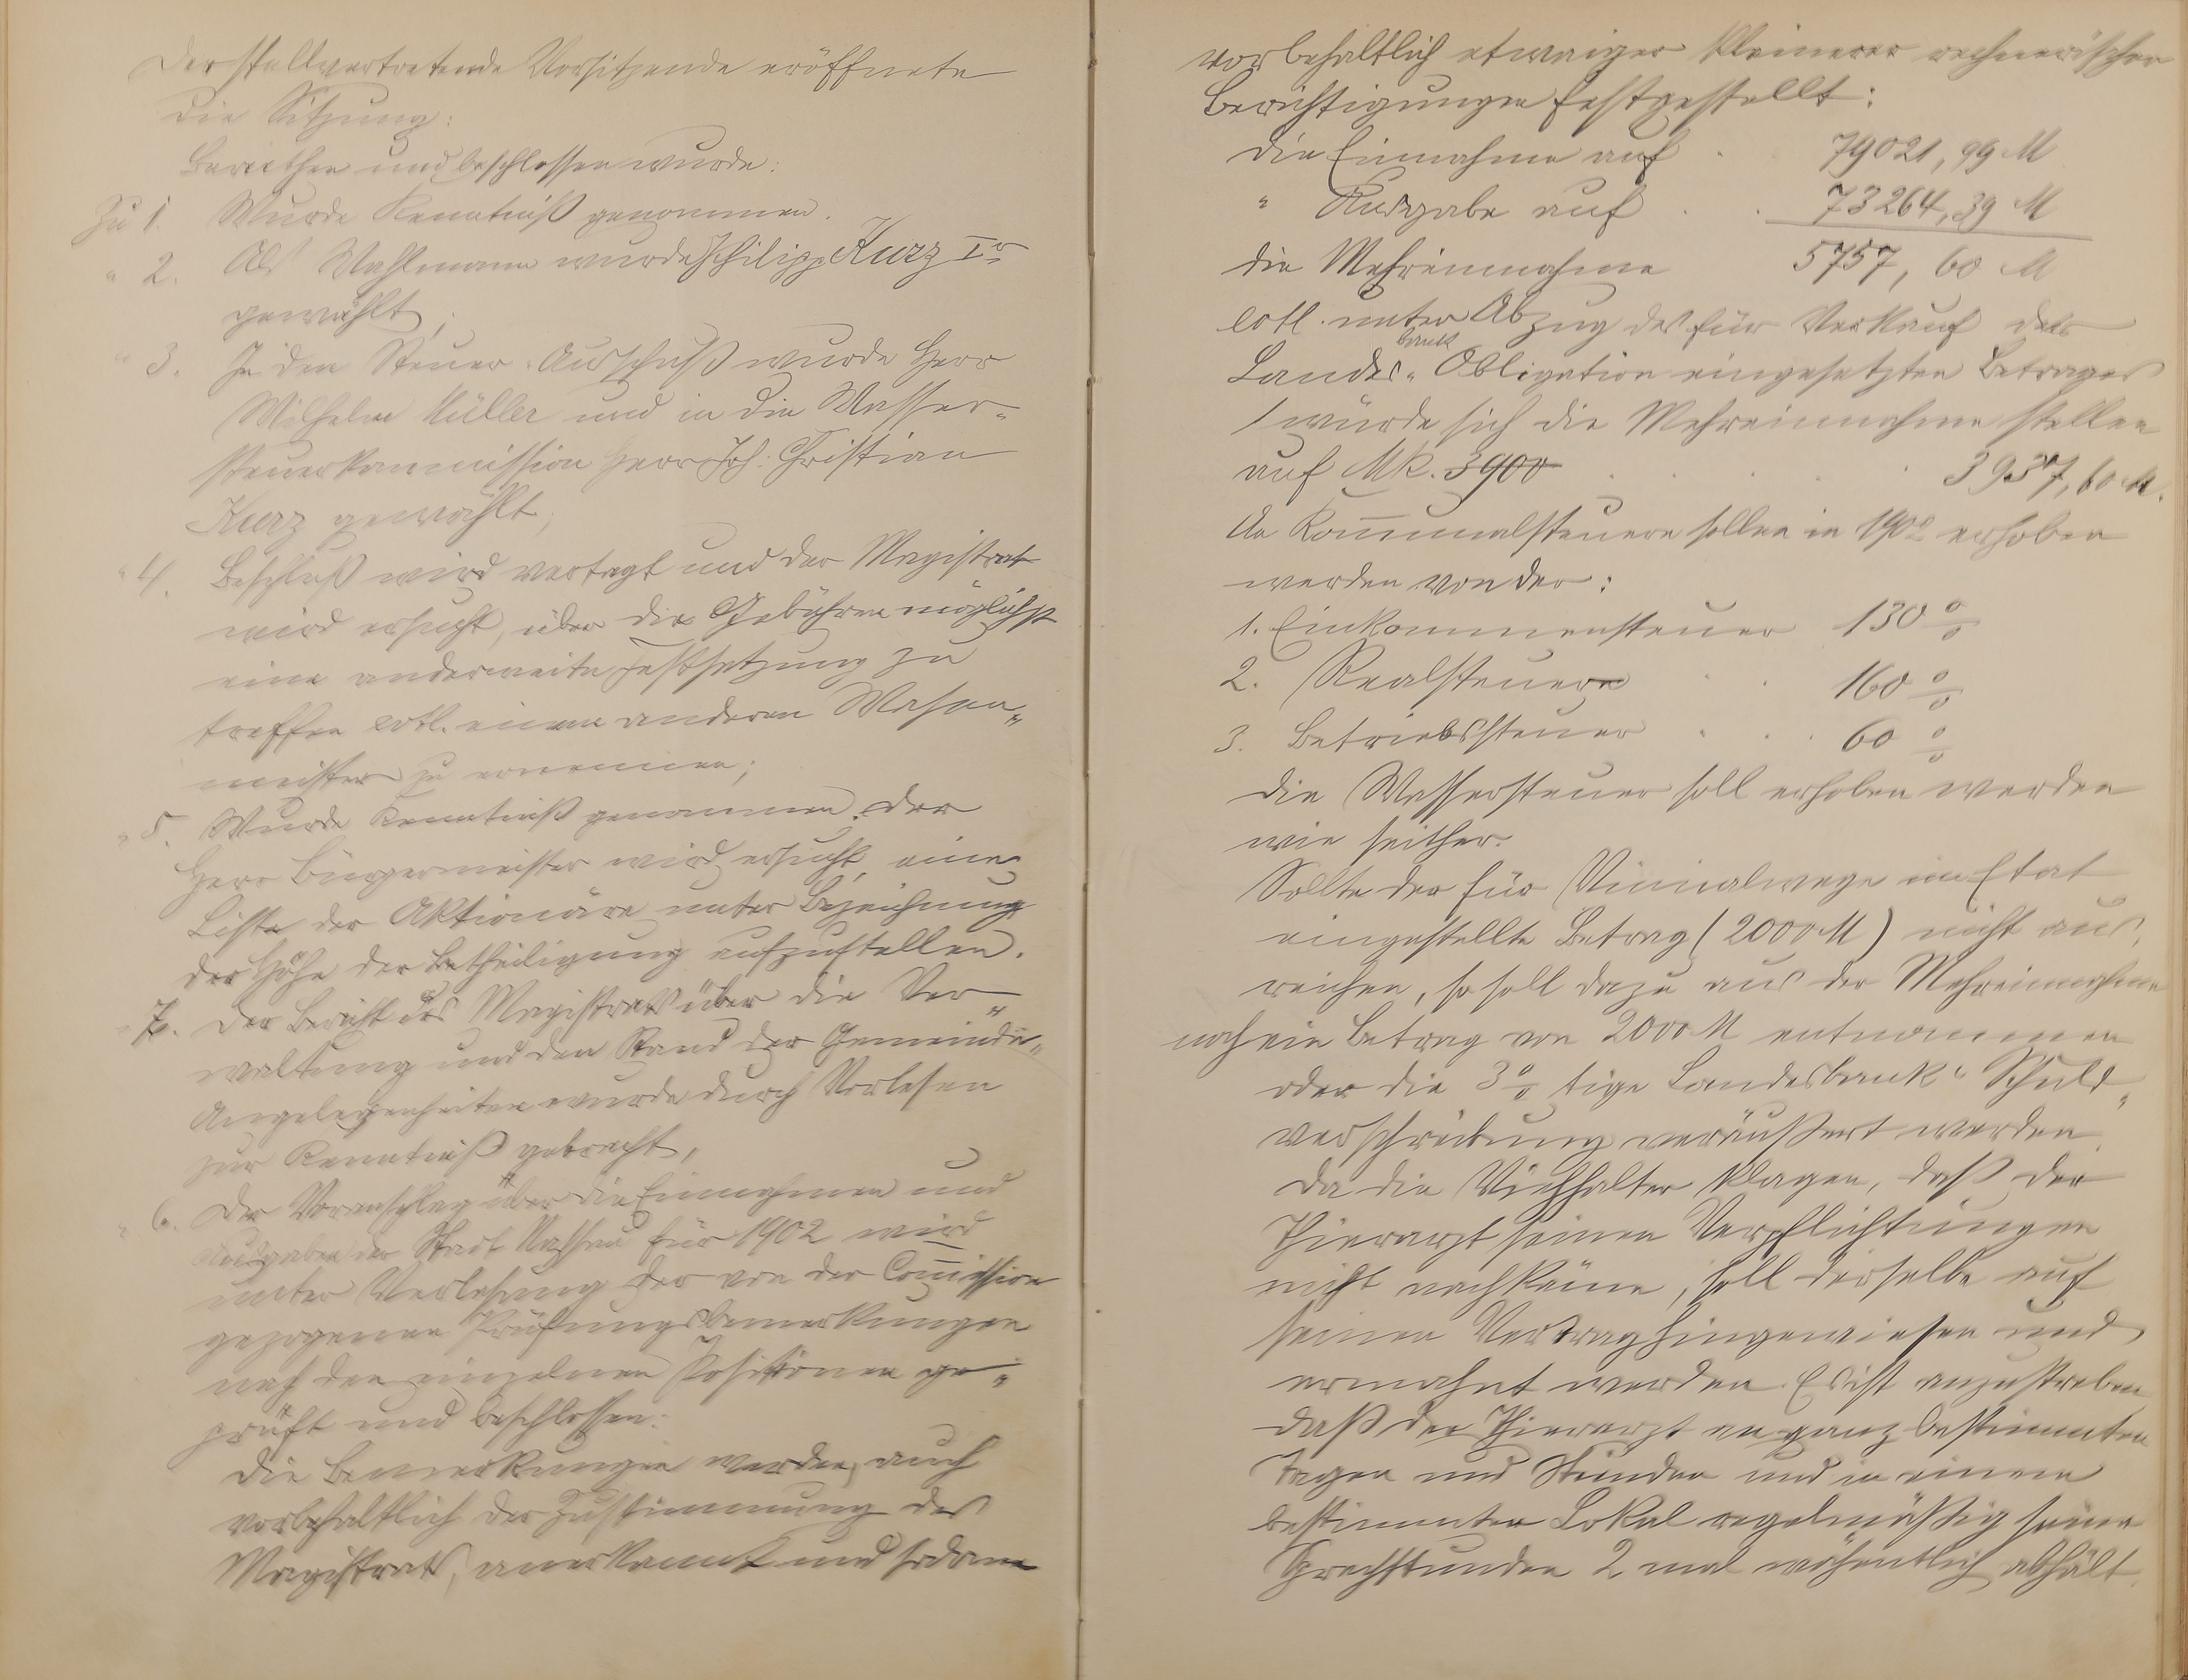 Der stellvertretende Vorsitzende eröffnete
die Sitzung:
Berathen und beschlossen wurde:
Zu 1. Wurde Kenntniß genommen.
" 2. Als Wahlmann wurde Philipp Kurz Ir
gewählt;
" 3. In den Steuer-Ausschuß wurde Herr
Wilhelm Müller und in die Wasser-
steuerkommission Herr Joh. Christian
Kurz gewählt;
" 4. Beschluß wird vertagt und der Magistrat
wird ersucht, über die Gebühren möglichst
eine anderweite Festsetzung zu
treffen evtl. einen anderen Wasen-
meister zu ernennen;
" 5. Wurde Kenntniß genommen. Der
Herr Bürgermeister wird ersucht, eine
Liste der Aktionäre unter Bezeichnung
der Höhe der Betheiligung aufzustellen.
" 7. Der Bericht des Magistrats über die Ver-
waltung und den Stand der Gemeinde-
Angelegenheiten wurde durch Vorlesen
zur Kenntniß gebracht,
" 6. Der Voranschlag über die Einnahmen und
Ausgaben der Stadt Nassau für 1902 wird
unter Verlesung der von der Com̄ission
gezogenen Prüfungsbemerkungen
nach den einzelnen Positionen ge-
prüft und beschlossen:
Die Bemerkungen werden, auch
vorbehaltlich der Zustimmung des
Magistrats, anerkannt und sodann
vorbehaltlich etwaiger kleinerer rechnerischer
Berichtigungen festgestellt:
die Einnahme auf . . 79021,99 M
" Ausgabe auf . . 73264,39 M
die Mehreinnahme 5757,60 M
evtl. unter Abzug des für Verkauf der
Landes-bank Obligation eingesetzten Betrages
würde sich die Mehreinnahme stellen
auf Mk. 3900 . . . . 3937,60 M.
An Kom̄unalsteuern sollen in 1902 erhoben
werden von der:
1. Einkommensteuer 130 %
2. Realsteuern . . 160 %
3. Betriebssteuer . . . 60 %
Die Wassersteuer soll erhoben werden
wie seither.
Sollte der für Vicinalwege im Etat
eingestellte Betrag (2000 M) nicht aus-
reichen, so soll dazu aus der Mehreinnahme
noch ein Betrag von 2000 M entnommen
oder die 3 % tige Landesbank-Schuld-
verschreibung veräußert werden.
Da die Viehhalter klagen, daß der
Thierarzt seinen Verpflichtungen
nicht nachkäme, soll derselbe auf
seinen Vertrag hingewiesen und
ermahnt werden. Es ist anzustreben
daß der Thierarzt an ganz bestimmten
Tagen und Stunden und in einem
bestimmten Lokal regelmäßig seine
Sprechstunden 2 mal wöchentlich abhält.